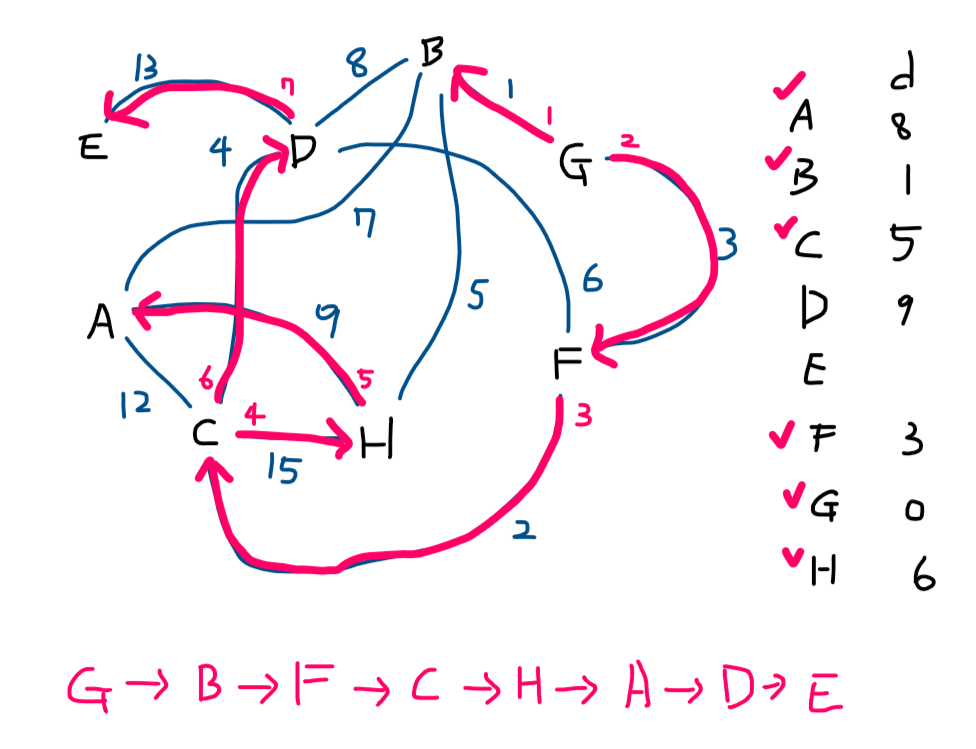 13
7
8
B
1
1
E
4
D
G
2
7
3
5
6
A
9
F
12
6
5
3
C
4
H
15
2
d
✓ A 8
✓ B 1
✓ C 5
D 9
E
✓ F 3
✓ G 0
✓ H 6
G → B → F → C → H → A → D → E